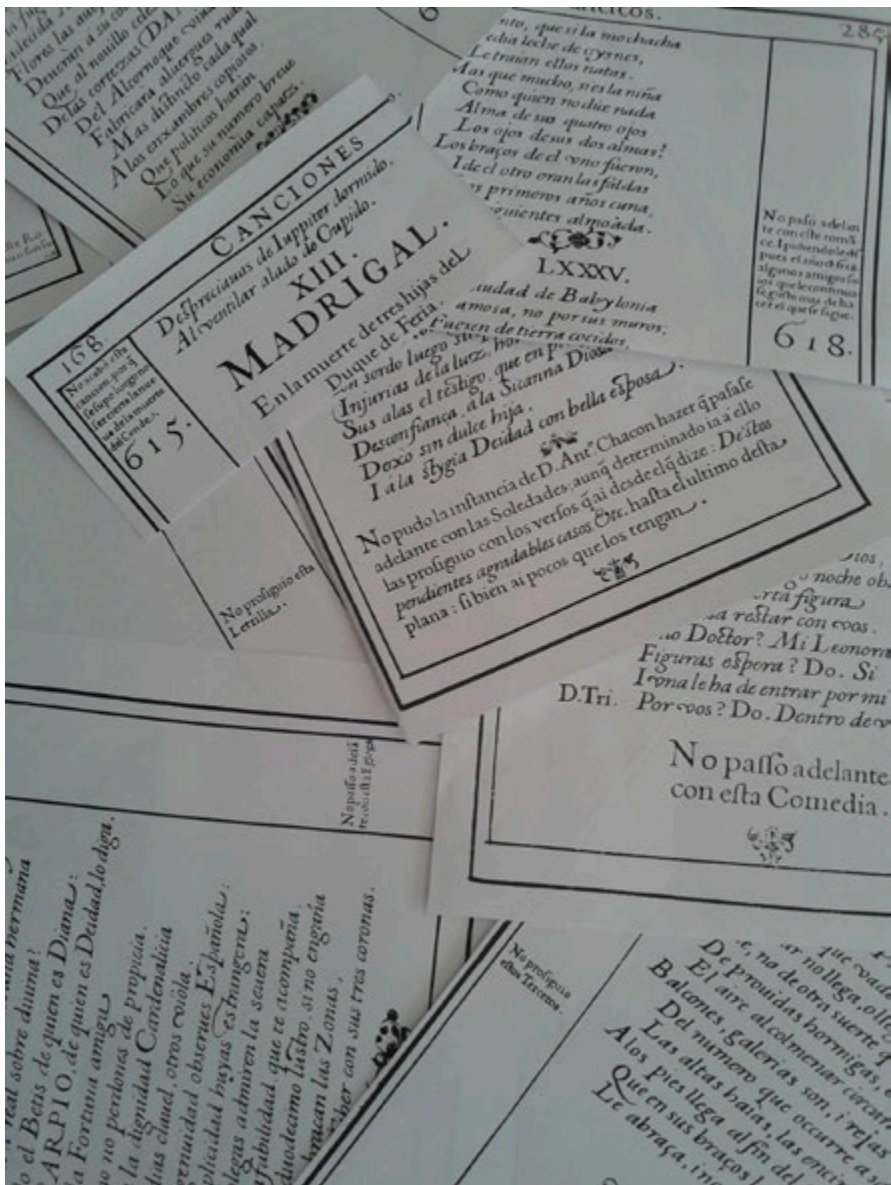 Flores las
Deueràn a su
Que al nouillo
De las cortezas
Del Alcornoque
Fabricarà aluergues
Mas distincto cada qual
A los enxambres copiosos.
Que politicos haràn
Lo que su numero breue
Su economia capaz.
6
285
nto, que si la mochacha
echa leche de cysnes,
Le traian ellos natas.
Mas que mucho, si es la niña
Como quien no dize nada
Alma de sus quatro ojos
Los ojos de sus dos almas?
Los braços de el vno fueron,
I de el otro eran las faldas
os primeros años cuna,
iguientes almoada.
LXXXV.
iudad de Babylonia
amosa, no por sus muros,
Fuesen de tierra cocidos,
No pasò adelan
te con este romã
ce. I pidiendole des
pues el año de
algunos amigos
que le
cer el que se sigue.
618.
168
CANCIONES
Despreciauas de Iuppiter dormido.
Al ventilar alado de Cupido.
XIII.
MADRIGAL.
En la muerte de tres hijas del
Duque de Feria.
No acabò esta
cancion, por q̃
se supo luego no
ser cierta la nue
ua de la muerte
del Conde.
615.
sordo luego
(Injurias de la luz,
Sus alas el testigo, que en
Desconfiança, a la Sicanna Diosa
Dexò sin dulce hija,
I à la stygia Deidad con bella esposa.
No pudo la instancia de D. Antº. Chacon hazer q̃ pasase
adelante con las Soledades: aunq̃ determinado ia à ello
las prosiguio con los versos q̃ ai desde el q̃ dize: Destos
pendientes agradables casos &c. hasta el ultimo desta
plana: si bien ai pocos que los tengan.
No prosiguio esta
Letrilla.
noche
figura
restar con vos.
Doctor? Mi Leonora
Figuras espera? Do. Si
le ha de entrar por mi
D.Tri. Por vos? Do. Dentro de
No passo adelante
con esta Comedia.
No pasò
hermana
real sobre diuina?
o el Betis de quien es Diana:
ARPIO, de quien es Deidad, lo diga.
a Fortuna amiga
no perdones de propicia.
la dignidad Cardenalicia
dias clauel, otros viola.
genuidad obserues Española:
plicidad huyas estrangera:
legas admiren la seuera
afabilidad, que te acompaña.
duodecimo lustro, si no engaña
abracan las Zonas,
ber con sus tres coronas.
No prosiguio
estos Tercetos.
que
no llega,
, no de otra suerte
De prouidas hormigas,
El aire al colmenar
Balcones, galerias son, i rejas
Del numero que occurre a
Las altas haias, las
A los pies llega al fin del
Que en sus braços
Le abraça,